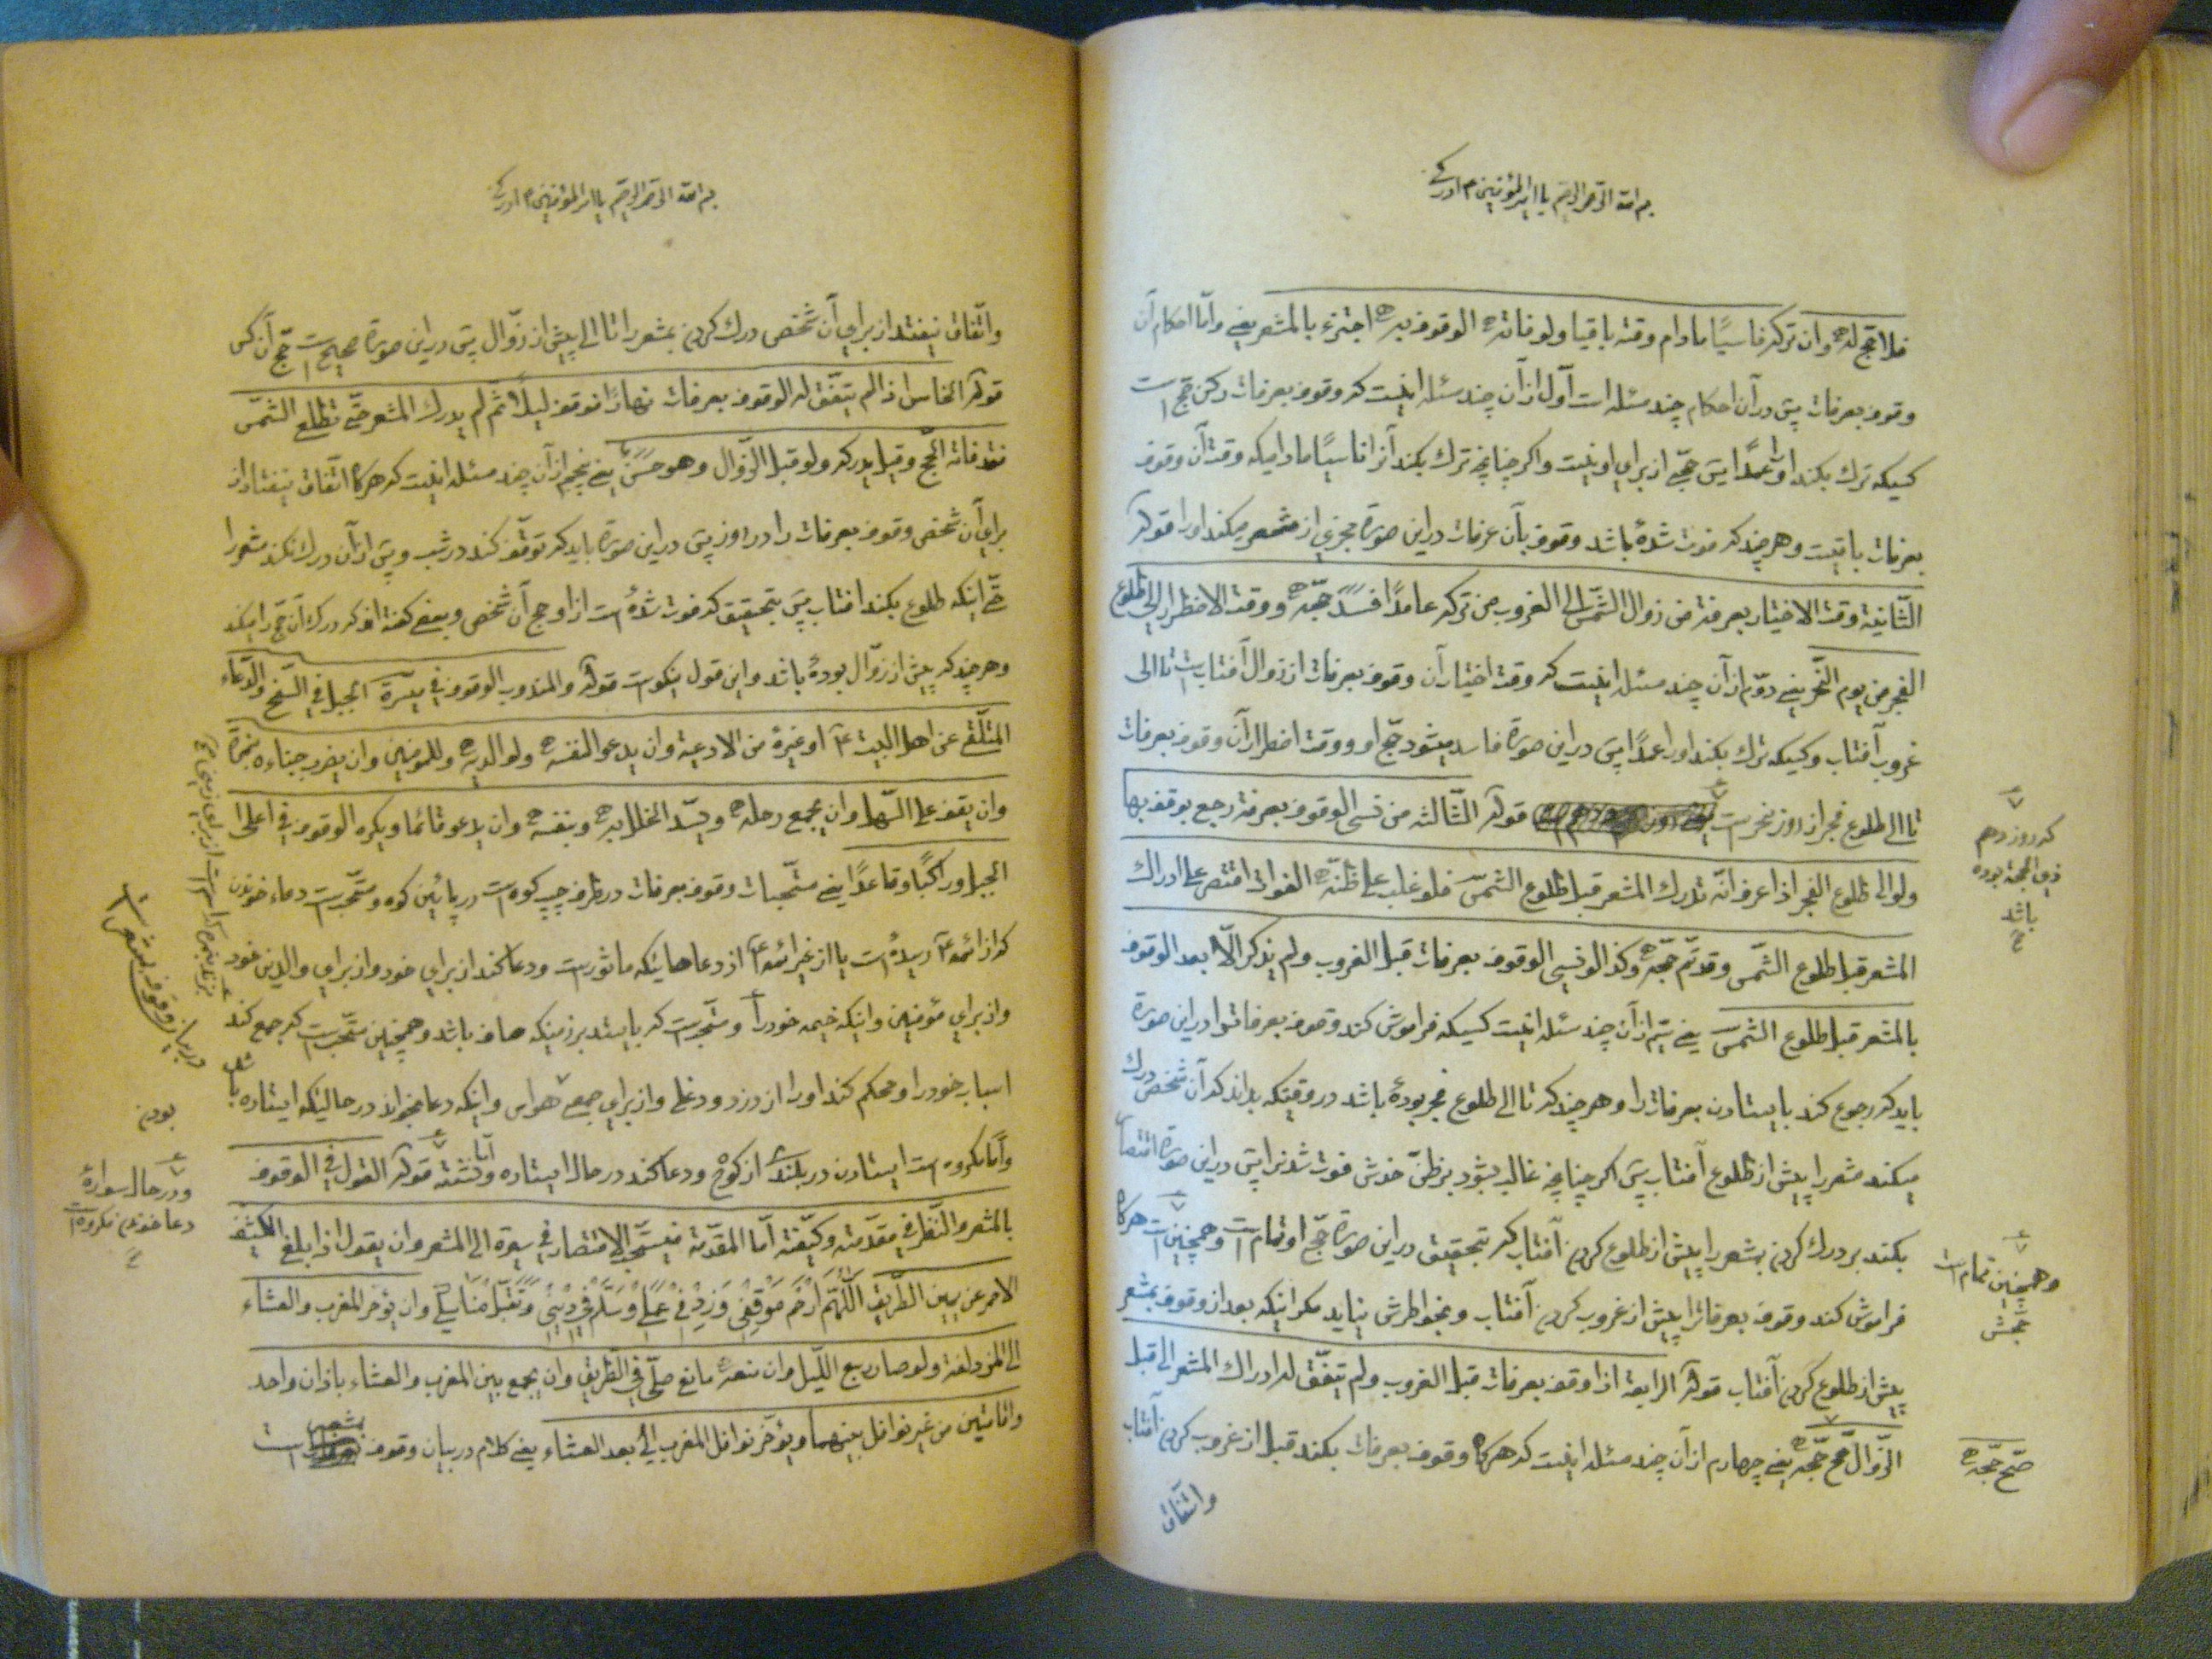 بسم الله الرحمن الرحیم یا امیر المؤمنین ادرکنی
فلا حج له وان ترکه ناسیًا مادام وقته باقیا ولو فاته الوقوف به اجتزء بالمشعر یعنی وامّا احکام آن
وقوف بعرفات پس در آن احکام چند مسئله است اوّل از آن چند مسئله اینست که وقوف بعرفات رکن حج است
کسیکه ترک بکند او را عمدًا پس حجّی از برای او نیست واکر چنانچه ترک بکند آنرا ناسیًا مادامیکه وقت آن وقوف
بعرفات باقیست و هر چند که فوت شدهٔ باشد وقوف بآن عرفات در این صورة مجزی از مشعر میکند او را قوله
الثّانیة وقت الاختیار بعرفة من زوال الشّمس الی الغروب من ترکه عامدًا فسد حجّه ووقت الاضطرار الی طلوع
الفجر من یوم النّحر یعنی دوّم از آن چند مسئله اینست که وقت اختیار آن وقوف بعرفات از زوال آفتاب است تا الی
غروب آفتاب و کسیکه ترک بکند او را عمدًا پس در این صورة فاسد میشود حجّ او و وقت اضطرار آن وقوف بعرفات
تا الی طلوع فجر از روز نحر است قوله الثّالثة من نسی الوقوف بعرفة رجع یوقف بها
که روز دهم
ذی الحجة بوده
باشد
ولو الی طلوع الفجر اذا عرف انّه یدرک المشعر قبل طلوع الشّمس فلو غلب علی ظنّه الفوات اقتصر علی ادراک
المشعر قبل طلوع الشّمس وقد تمّ حجّه وکذا لو نسی الوقوف بعرفات قبل الغروب ولم یذکر الّا بعد الوقوف
بالمشعر قبل طلوع الشّمس یعنی سیّم از آن چند مسئله اینست کسیکه فراموش کند وقوف بعرفات را در این صورة
باید که رجوع کند بایستادن بعرفات را و هر چند که تا الی طلوع فجر بودهٔ باشد در وقتیکه بداند که آن شخص درک
میکند مشعر را پیش از طلوع آفتاب پس اکر چنانچه غالب بشود بر ظنّ خودش فوت شدنرا پس در این صورة اقتصار
بکند بر درک کردن بمشعر را پیش از طلوع کردن آفتاب که بتحقیق در این صورة حجّ او تمام است وهمچنین است هرکاه
وهمچنین تمام است
حجّش
فراموش کند وقوف بعرفاترا پیش از غروب کردن آفتاب و بخواطرش نیاید مکر اینکه بعد از وقوف بمشعر
پیش از طلوع کردن آفتاب قوله الرابعة اذا وقف بعرفات قبل الغروب ولم یتّفق له ادراک المشعر الی قبل
الزّوال صح حجّه یعنی چهارم از آن چند مسئله اینست که هرکاه وقوف بعرفات بکند قبل از غروب کردن آفتاب
صحّ حجّه
واتّفاق
بسم الله الرحمن الرحیم یا امیر المؤمنین ادرکنی
واتّفاق نیفتد از برای آن شخص درک کردن بمشعر را تا الی پیش از زوّال پس در این صورة صحیح است حجّ آن کس
قوله الخامس اذا لم یتّفق له الوقوف بعرفات نهارًا فوقف لیلًا ثمّ لم یدرک المشعر حتّی تطلع الشّمس
فقد فاته الحجّ وقیل یدرکه ولو قبل الزّوال وهو حسن یعنی پنجم از آن چند مسئله اینست که هرکاه اتّفاق نیفتد از
برای آن شخص وقوف بعرفات را در روز پس در این صورة باید که توقّف کند در شب و پس از آن درک نکند مشعر را
حتّی اینکه طلوع بکند افتاب پس بتحقیق که فوت شدهٔ است از او حج آن شخص و بعضی کفته اند که درک آن حجّ را میکند
وهر چند که پیش از زوّال بودهٔ باشد واین قول نیکوست قوله والمندوب الوقوف فی میسرة الجبل فی السّفح والدّعاء
المتلقّی عن اهل البیت ع او غیرهٔ من الادعیة وان یدعو لنفسه ولوالدیه وللمؤمنین وان یضرب خباءه بنمرة
وان یقف علی السّهل وان یجمع رحله ویسدّ الخلل به وبنفسه وان یدعو قائما ویکره الوقوف فی اعلی
الجبل وراکبًا وقاعدًا یعنی مستحبات وقوف بعرفات در طرف چپ کوه است در پائین کوه ومستحبست دعاء خوندن
که از ائمه ع رسیدهٔ است یا از غیر ائمه ع از دعاهائیکه ماثور است ودعا کند از برای خود واز برای والدین خود
واز برای مؤمنین واینکه خیمه خود را ومستحبست که بایستد بر زمینکه صاف باشد وهمچنین مستحبست که جمع کند
اسباب خود را ومحکم کند او را از دزد ودغل واز برای جمعی حواس واینکه دعا بخواند در حالیکه ایستاده باشد
بودن
وامّا مکروه است ایستادن در بلندی از کوه ودعا کند در حال ایستاده ونشسته قوله القول فی الوقوف
ودر حال سوارهٔ
دعا خوندن مکروه است
بالمشعر والنّظر فی مقدّمته وکیّفته امّا المقدّمة فیستحبّ الاقتصار فی سیره الی المشعر وان یقول اذا بلغ الکثیف
الاحمر عن یمین الطّریق اَللّهُمَّ ارْحَمْ مَوْقِفی وَزِدْ فی عَمَلی وَسَلِّمْ لی دینی وَتَقَبَّلْ مَناسِکی وان یؤخر المغرب والعشاء
الی المزدلفة ولو صار ربع اللّیل وان منعهٔ مانع صلّی فی الطّریق وان یجمع بین المغرب والعشاء باذان واحد
واقامتین من غیر نوافل بینهما ویؤخّر نوافل المغرب الی بعد العشاء یعنی کلام در بیان وقوف بمشعر است
در بیان وقوف بمشعر است